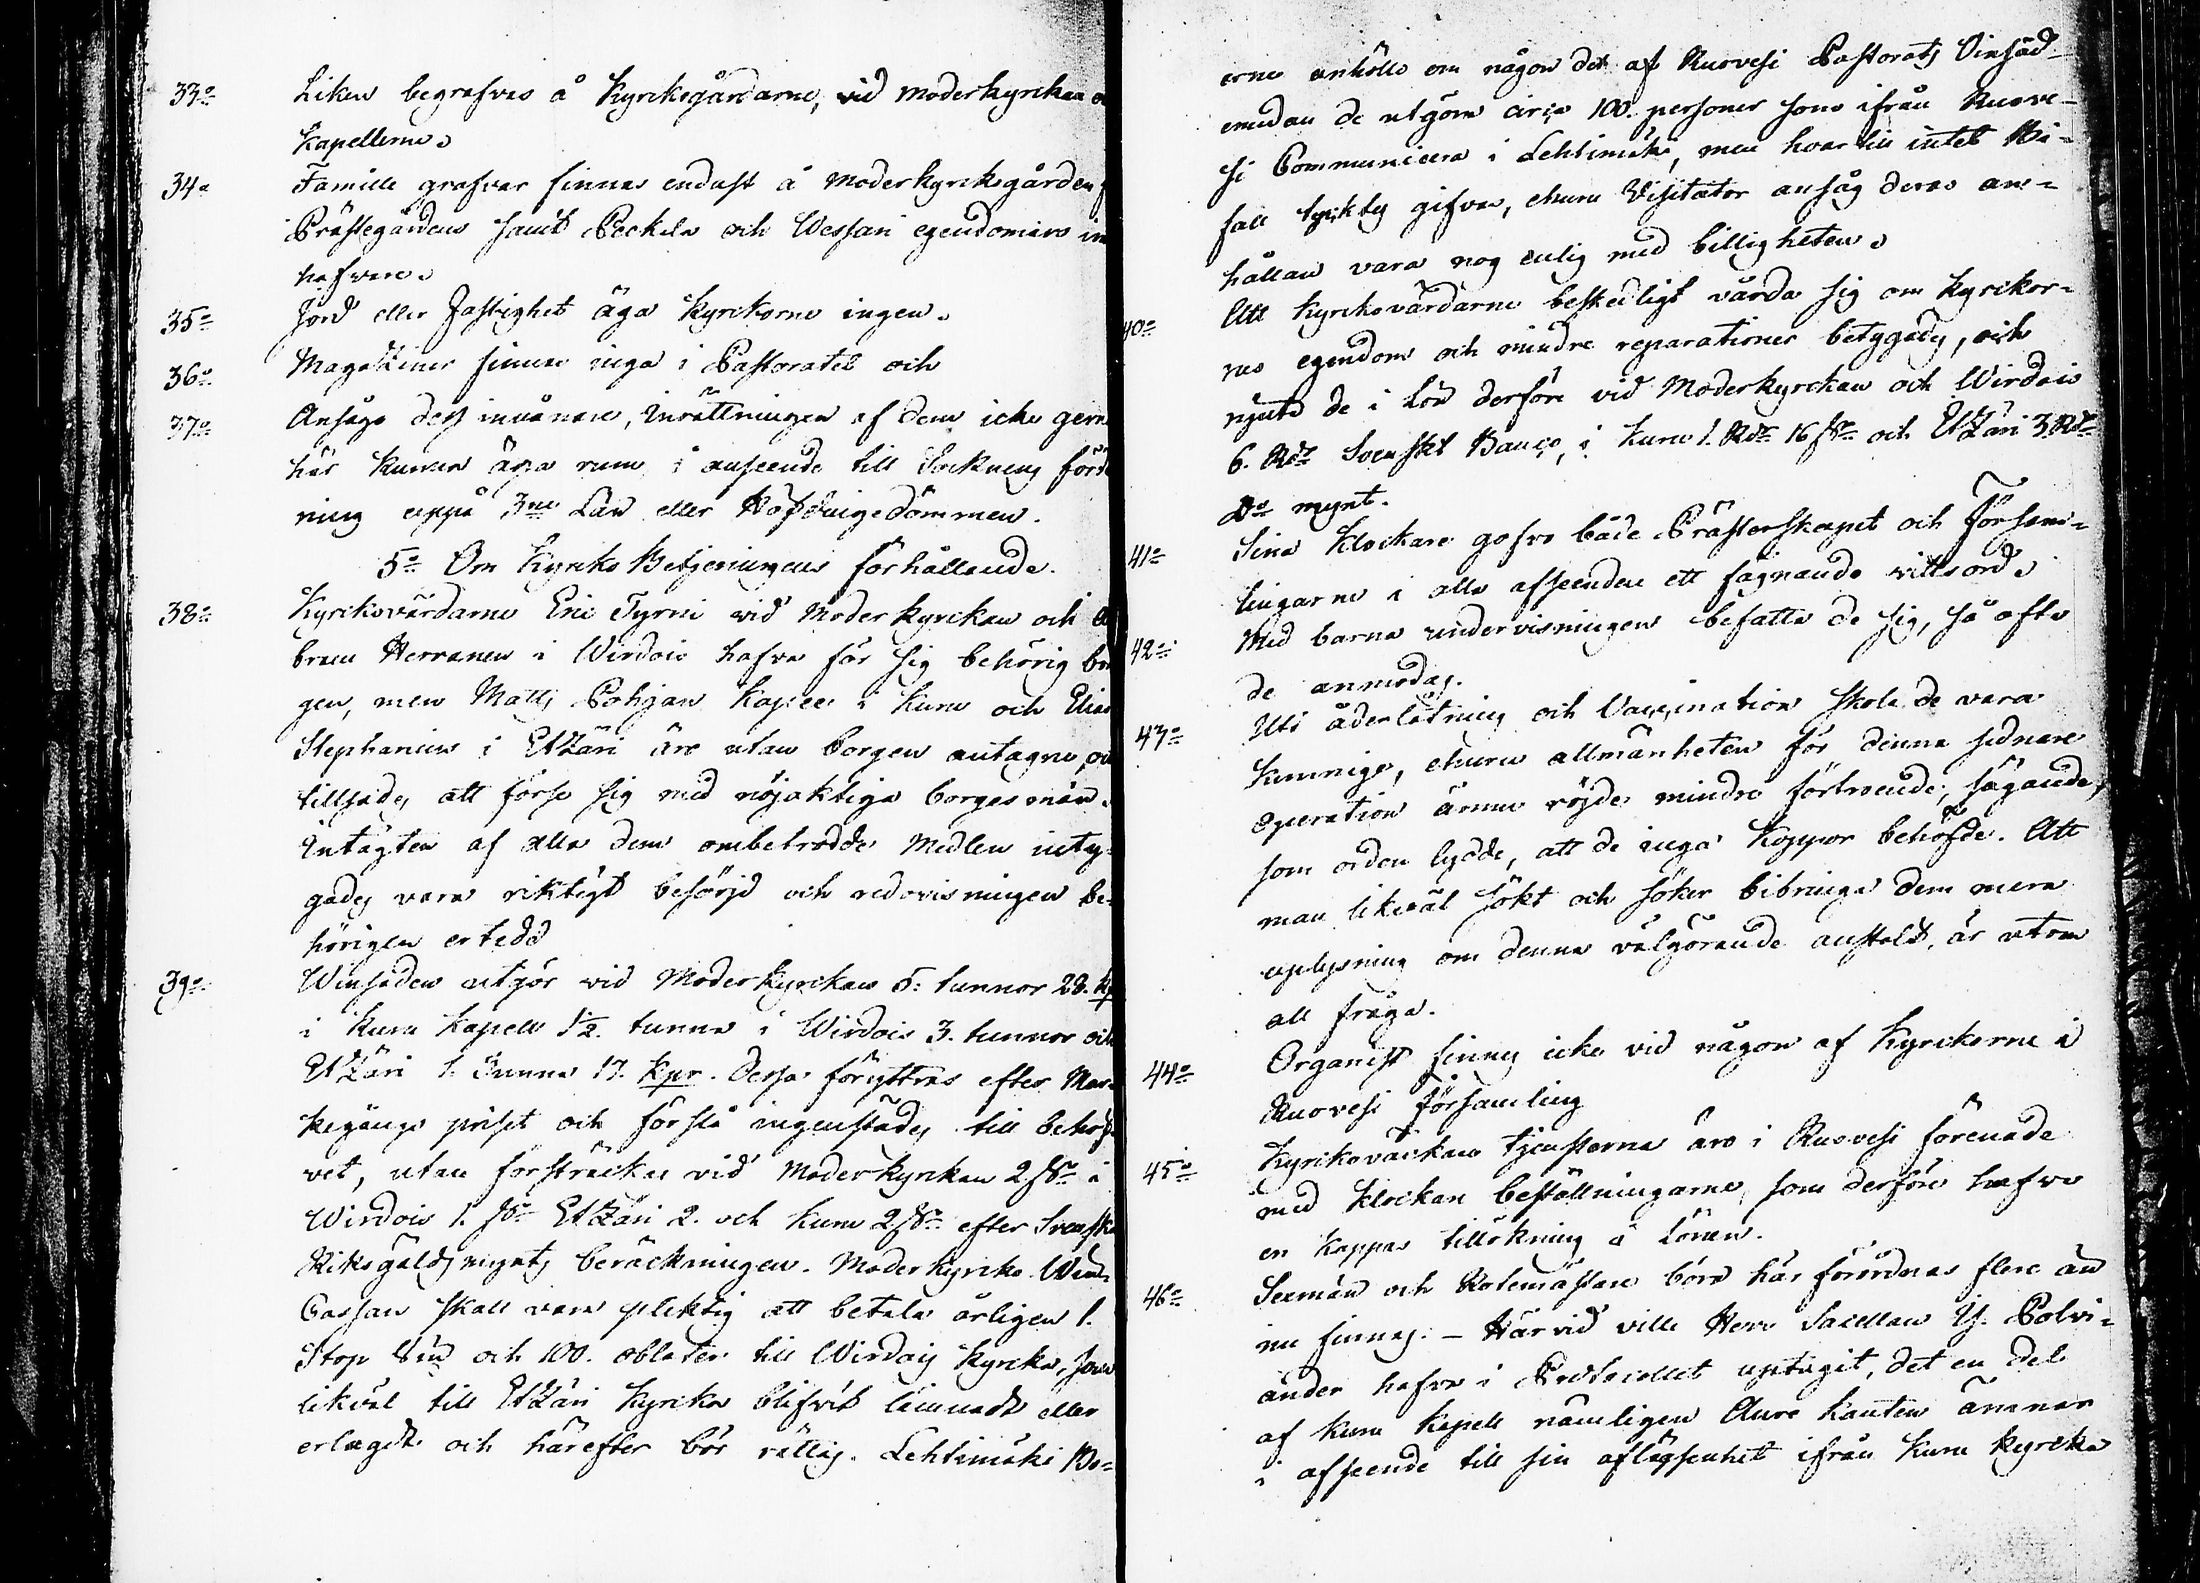 33:o Liken begrafvas å Kyrkogårdarne, vid Moderkyrkan
Kapellerne.
34:o Famille grafvar finnas endast å Moderkyrkogården
Prästegårdens samt Peckala och Wessari egendomars in
hafvare.
35:o Jord eller Fastighet äga Kyrkorne ingen.
36:o Magaziner finnas inga i Pastoratet och
37:o Ansågo dess invånare, inrättningen af dem icke gerna
här kunna äga rum i anseende till Socknens förde
ning uppå 3:ne Län eller Höfdingedömmen.
5:o Om Kyrko Betjeningens förhållande.
38:o Kyrkovärdarne Eric Tyrni vid Moderkyrkan och A
bram Herranen i Wirdois hafva för sig behörig bor
gen, men Matts Pohjan Kapee i Kuru och Elias
Stephanius i Etzäri äro utan borgen antagne,
tillsades att förse sig med nöjaktiga borgesmän.
Intägten af alla dem ombetrodde Medlen inty-
gades vara riktigt besörjd och redovisningen be-
hörigen ertedd
39:o Winsäden utgör vid Moderkyrkan 5. tunnor 28. kp
i Kuru Kapell 1/2. tunna i Wirdois 3. tunnor och
Etzäri 1. Tunna 17. kpr. Dessa föryttras efter Mar-
kegångs priset och förslå ingenstädes till behof-
vet, utan försträckes vid Moderkyrkan 2 sk: i
Wirdois 1. sk: Etzäri 2. och Kuru 2 sk: efter Svenska
Riksgälds mynts beräckningen. Moderkyrko Win-
Cassan skall vara pliktig att betala årligen 1.
Stop Vin och 100. oblater till Wirdois Kyrka, som
likväl till Etzäri Kyrka blifvit lämnadt eller
erlagdt och härefter bör rättas. Lehtimäki Bo-
erne anhölle om någon del af Ruovesi Pastorats Vinsäd
emedan de utgöra circa 100. personer som ifrån Ruove-
si Communicera i Lehtimäki, men hvartill intet Bi-
fall tycktes gifvas, ehuru Visitator ansåg deras an-
hållan vara nog enlig med billigheten.
40:o Att Kyrkovärdarne beskedligt vårda sig om Kyrkor-
nes egendom och mindre reparationer betygades, och
njuta de i Lön derföre vid Moderkyrkan och Wirdois
6. Rd: Svenskt Banco, i Kuru 1. Rd: 16 sk: och Etzäri 3. Rd:
D:o mynt.
41:o Sina Klockare gofvo både Prästerskapet och Försam-
lingarne i alla afseenden ett fägnande vittsord.
42:o Med barna undervisningen befatta de sig, så ofta
de anmodas.
43:o Uti åderlåtning och Vaccination skola de vara
kunnige, ehuru allmänheten för denna sednare
operation ännu röjde mindre förtroende, sägandes
som orden lydde, att de inga Koppor behöfde. Att
man likväl sökt och söker bibringa dem mera
uplysning om denna välgörande anstalt, är utom
all fråga.
44:o Organist finnes icke vid någon af Kyrkorne i
Ruovesi Församling
45:o Kyrkoväckare tjensterne äro i Ruovesi förenade
med klockare beställningarne, som derföre hafva
en Kappas tillökning i Lönen.
46:o Sexmän och Rotemästare böra här förordnas flere än
nu finnas. - Härvid ville Herr Sacellan Y. Polvi-
ander hafva i Protocollet uptagit, det en del
af Kuru Kapell nämligen Aure kanten ämnar
i afseende till sin aflägsenhet ifrån Kuru Kyrka